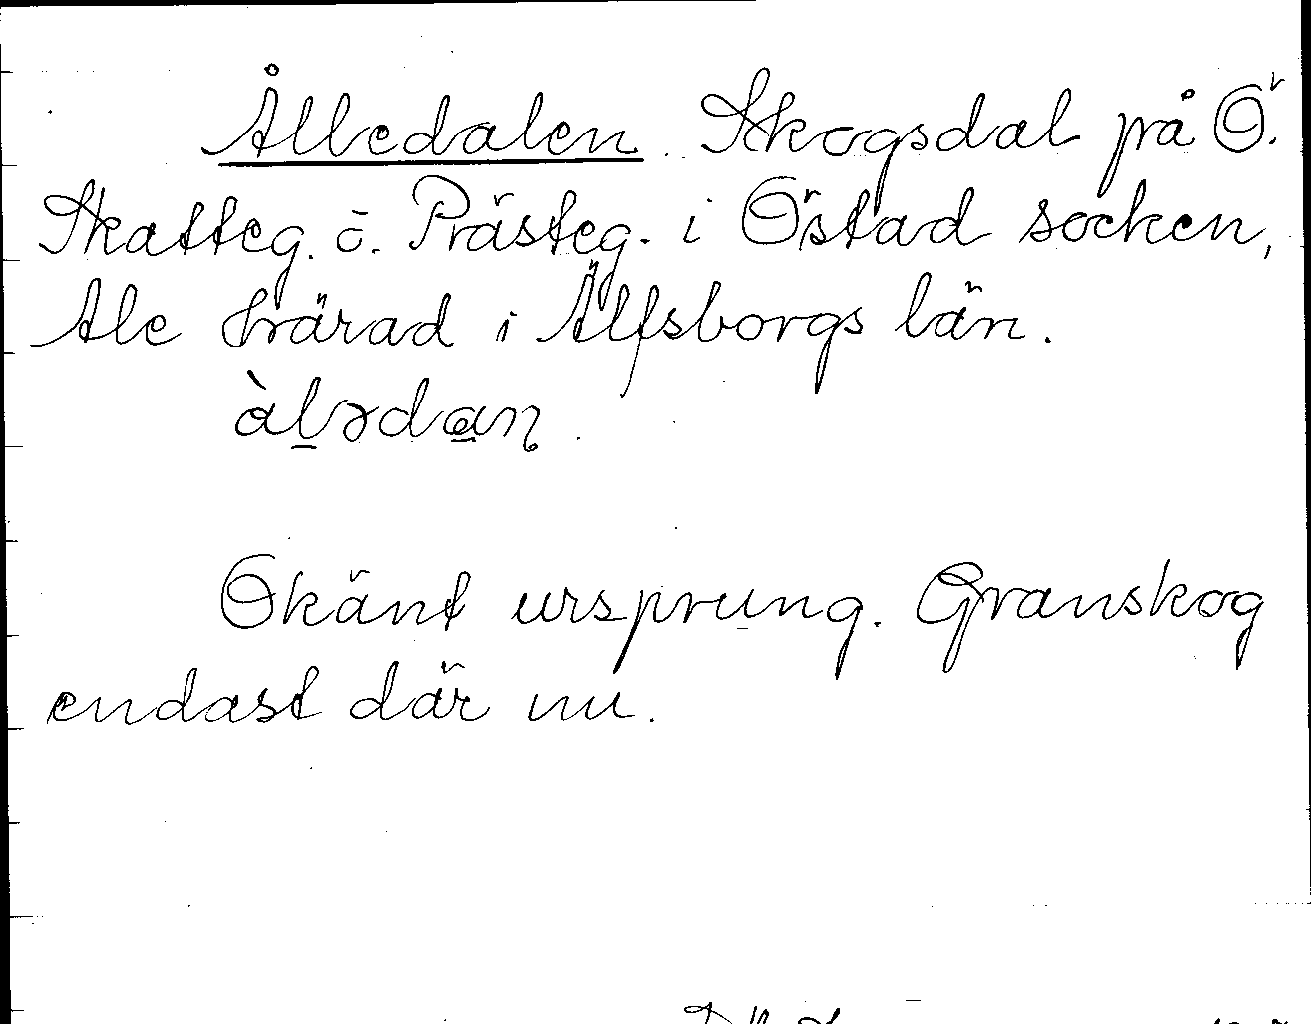 Ålledalen. Skogsdal på Ö.
Skatteg. o. Prästeg. i Östad socken,
Ale härad i Älfsborgs län.
àlədan.
Okänt ursprung. Granskog
endast där nu.